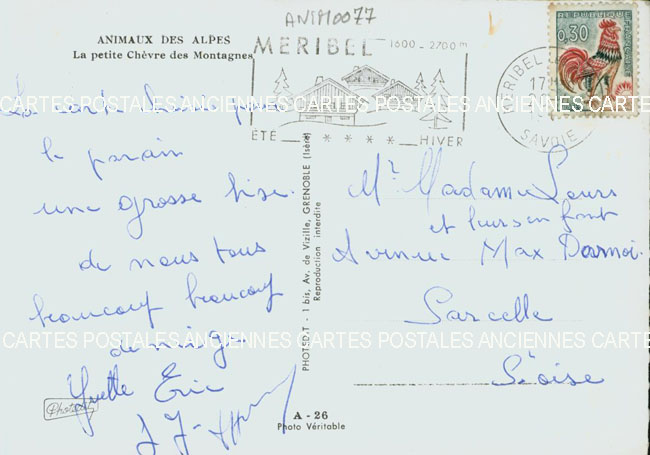 ANIM0077
ANIMAUX DES ALPES
La petite Chèvre des Montagnes
MERIBEL 1600 - 2700 m
ÉTÉ * * * * HIVER
MERIBEL
17
SAVOIE
REPUBLIQUE FRANCAISE
0,30
La carte
le parain
une grosse bise
de nous tous
beaucoup beaucoup
de neige
Yvette Eric
J J
Mr Madame
et leurs enfant
Avenue Max Dormoi
Sarcelle
S. oise
PHOTED.T - 1 bis, Av. de Vizille, GRENOBLE (Isère)
Reproduction interdite
A - 26
Photo Véritable
CARTES POSTALES ANCIENNES CARTES POSTALES ANCIENNES CARTES
CARTES POSTALES ANCIENNES CARTES POSTALES ANCIENNES CARTES